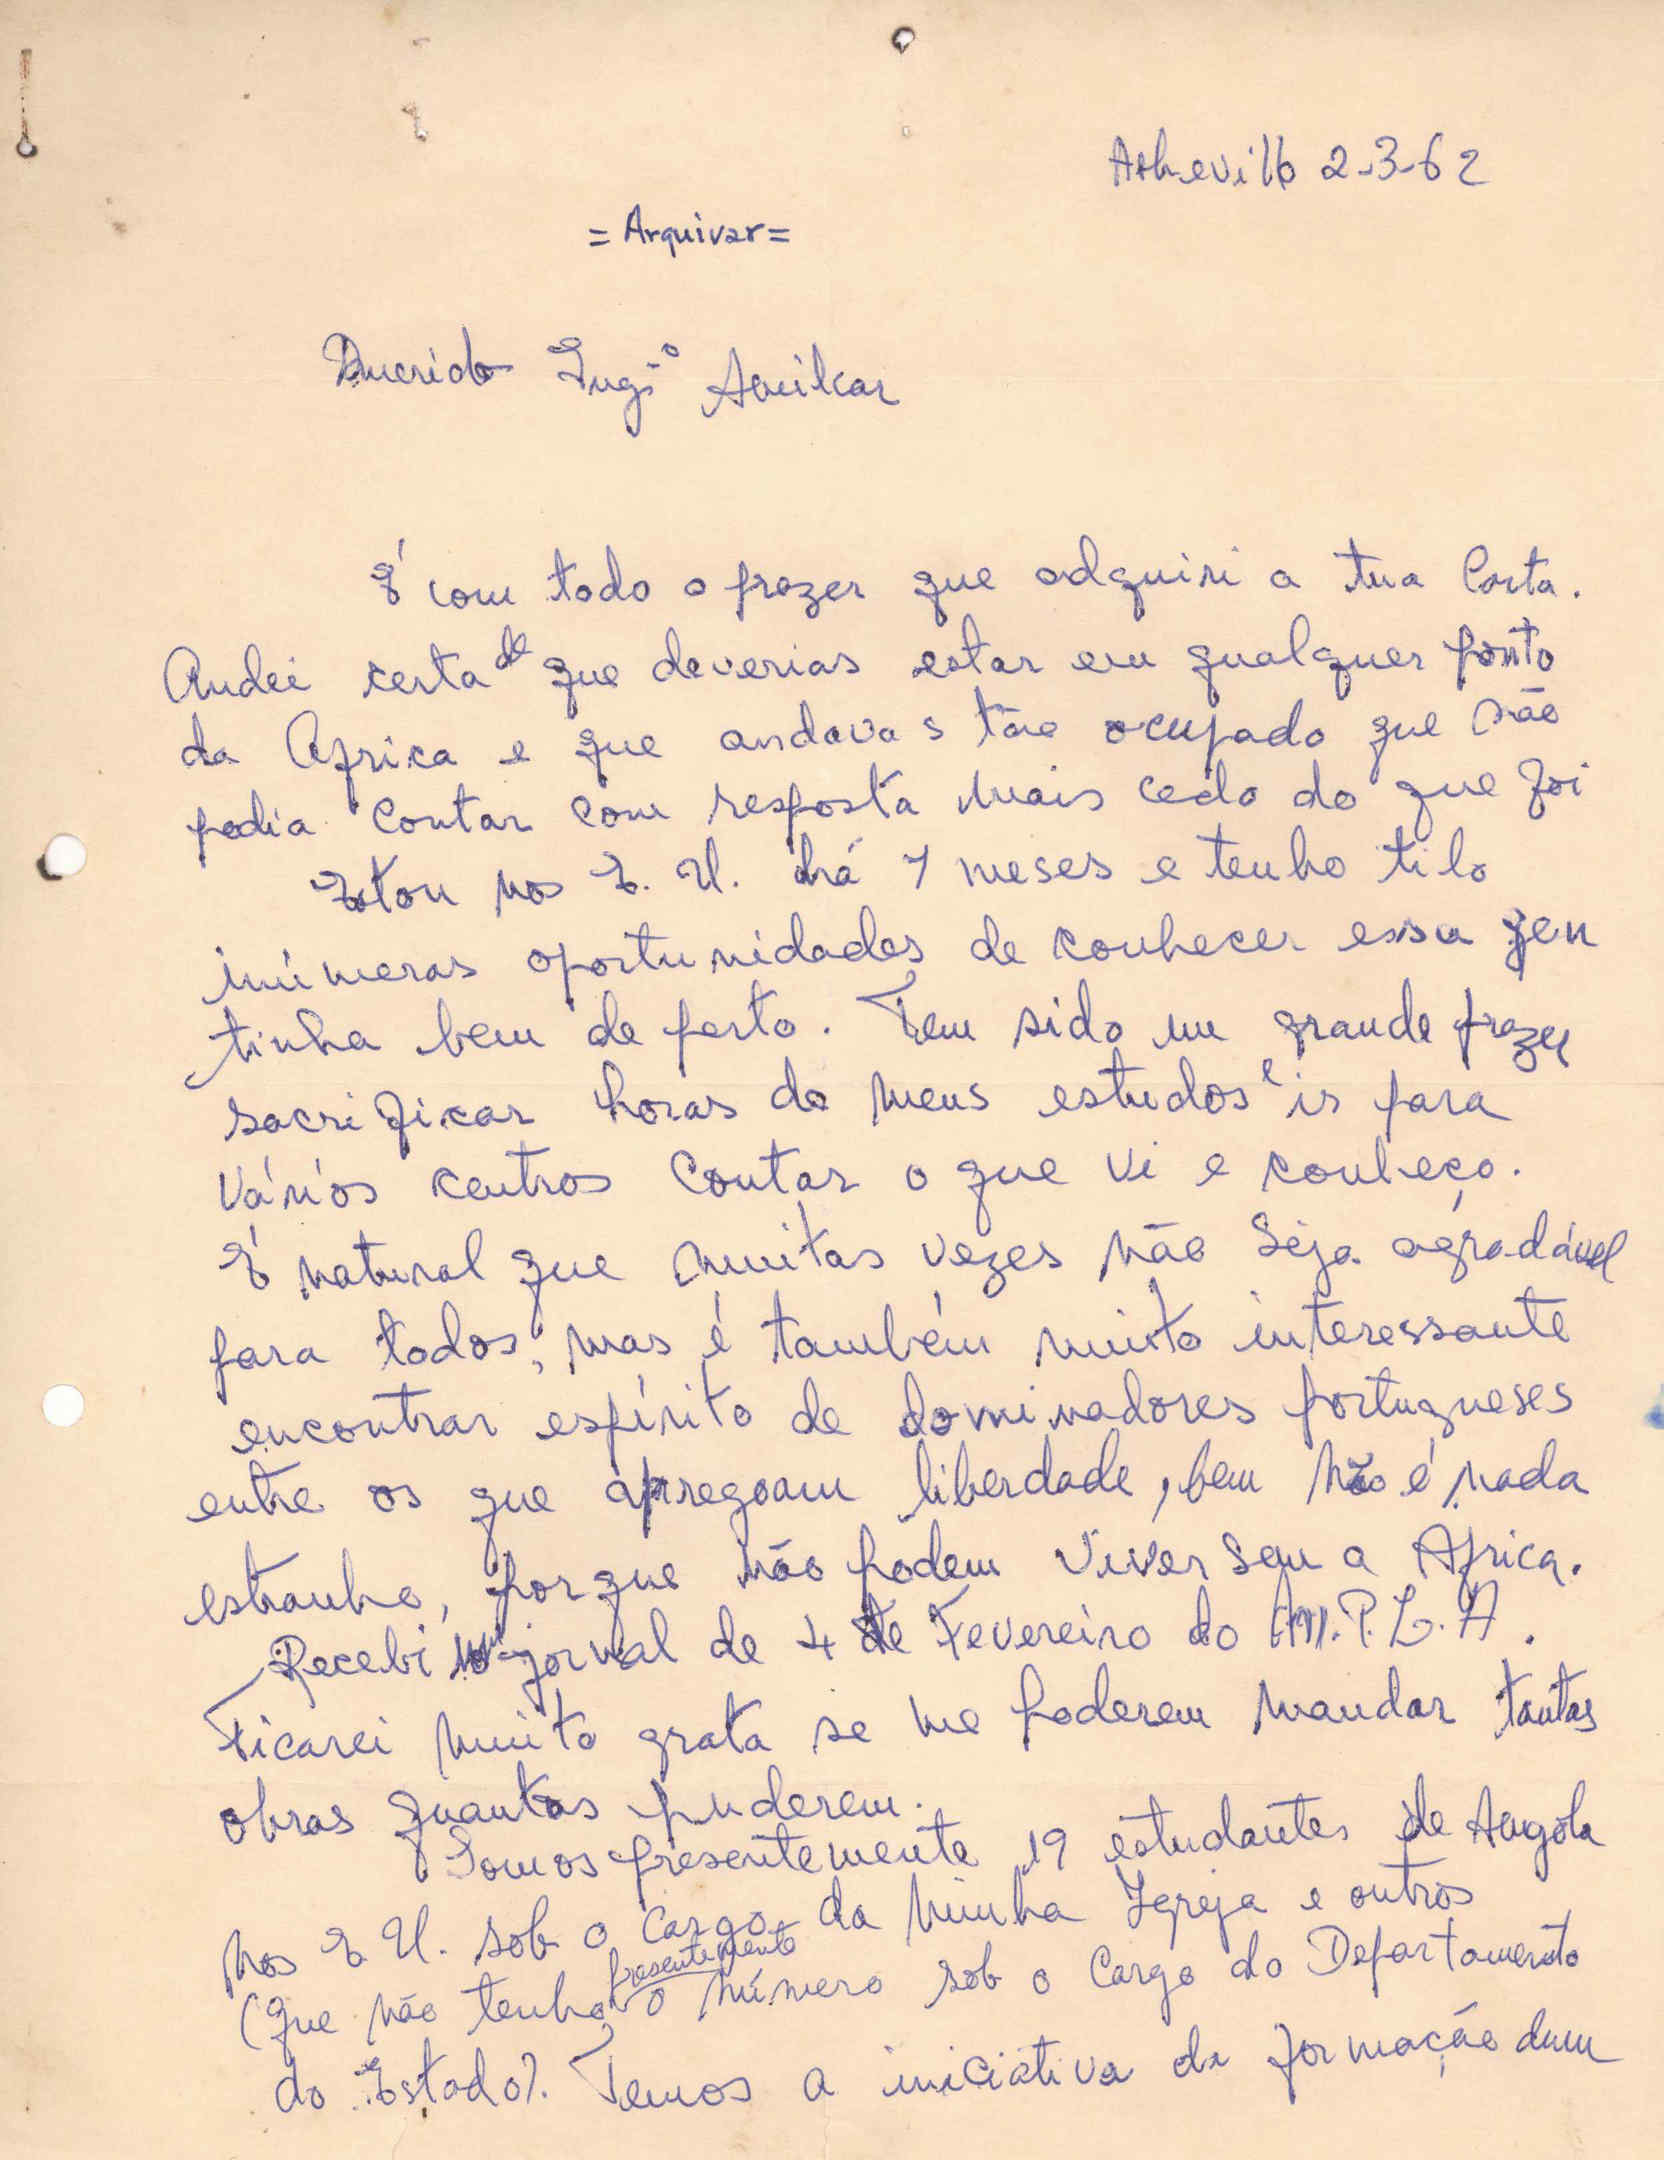 Asheville 2-3-62
= Arquivar =
Querido Engº Amilcar
É com todo o prazer que adquiri a tua Carta.
Andei certa de que deverias estar em qualquer ponto
da Africa e que andavas tão ocupado que não
podia contar com resposta mais cedo do que foi
Estou nos E. U. há 7 meses e tenho tido
inúmeras oportunidades de conhecer essa gen
tinha bem de perto. Tem sido um grande prazer
sacrificar horas de meus estudos e ir para
vários centros contar o que vi e conheço.
É natural que muitas vezes não seja agradável
para todos, mas é também muito interessante
encontrar espírito de dominadores portugueses
entre os que apregoam liberdade, bem não é nada
estranho, porque não podem viver sem a Africa.
Recebi jornal de 4 de Fevereiro do M.P.L.A.
Ficarei muito grata se me poderem mandar tantas
obras quantas puderem.
Somos presentemente 19 estudantes de Angola
nos E U. sob o cargo da minha Igreja e outros
(que não tenho presentemente o número sob o cargo do Departamento
do Estado). Temos a iniciativa da formação dum